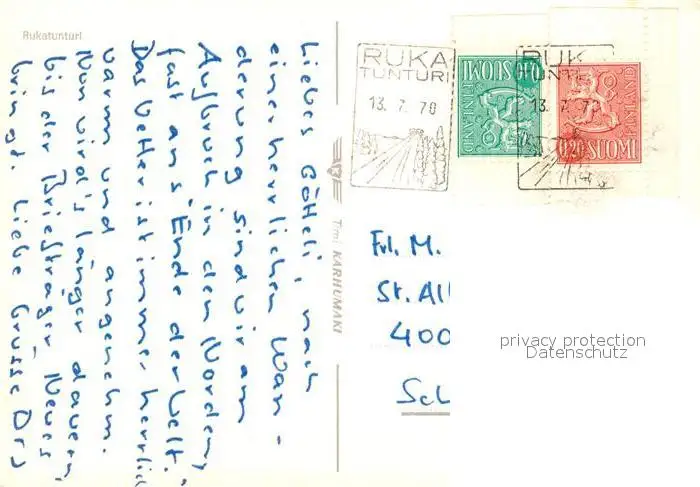 Rukatunturi
Liebes Götteli, nach
einer herrlichen Wan-
derung sind wir am
Aufbruch in den Norden,
fast ans "Ende der Welt."
Das Wetter ist immer herrlich
warm und angenehm.
Nun wird's länger dauern,
bis der Briefträger Neues
bringt. Liebe Grüsse
Timi KARHUMÄKI
RUKA
TUNTURI
13. 7. 70
SUOMI
FINLAND
RUK
TUNTU
13. 7. 70
FINLAND
0,20 SUOMI
Frl. M.
St. Al
400
Sch
privacy protection
Datenschutz